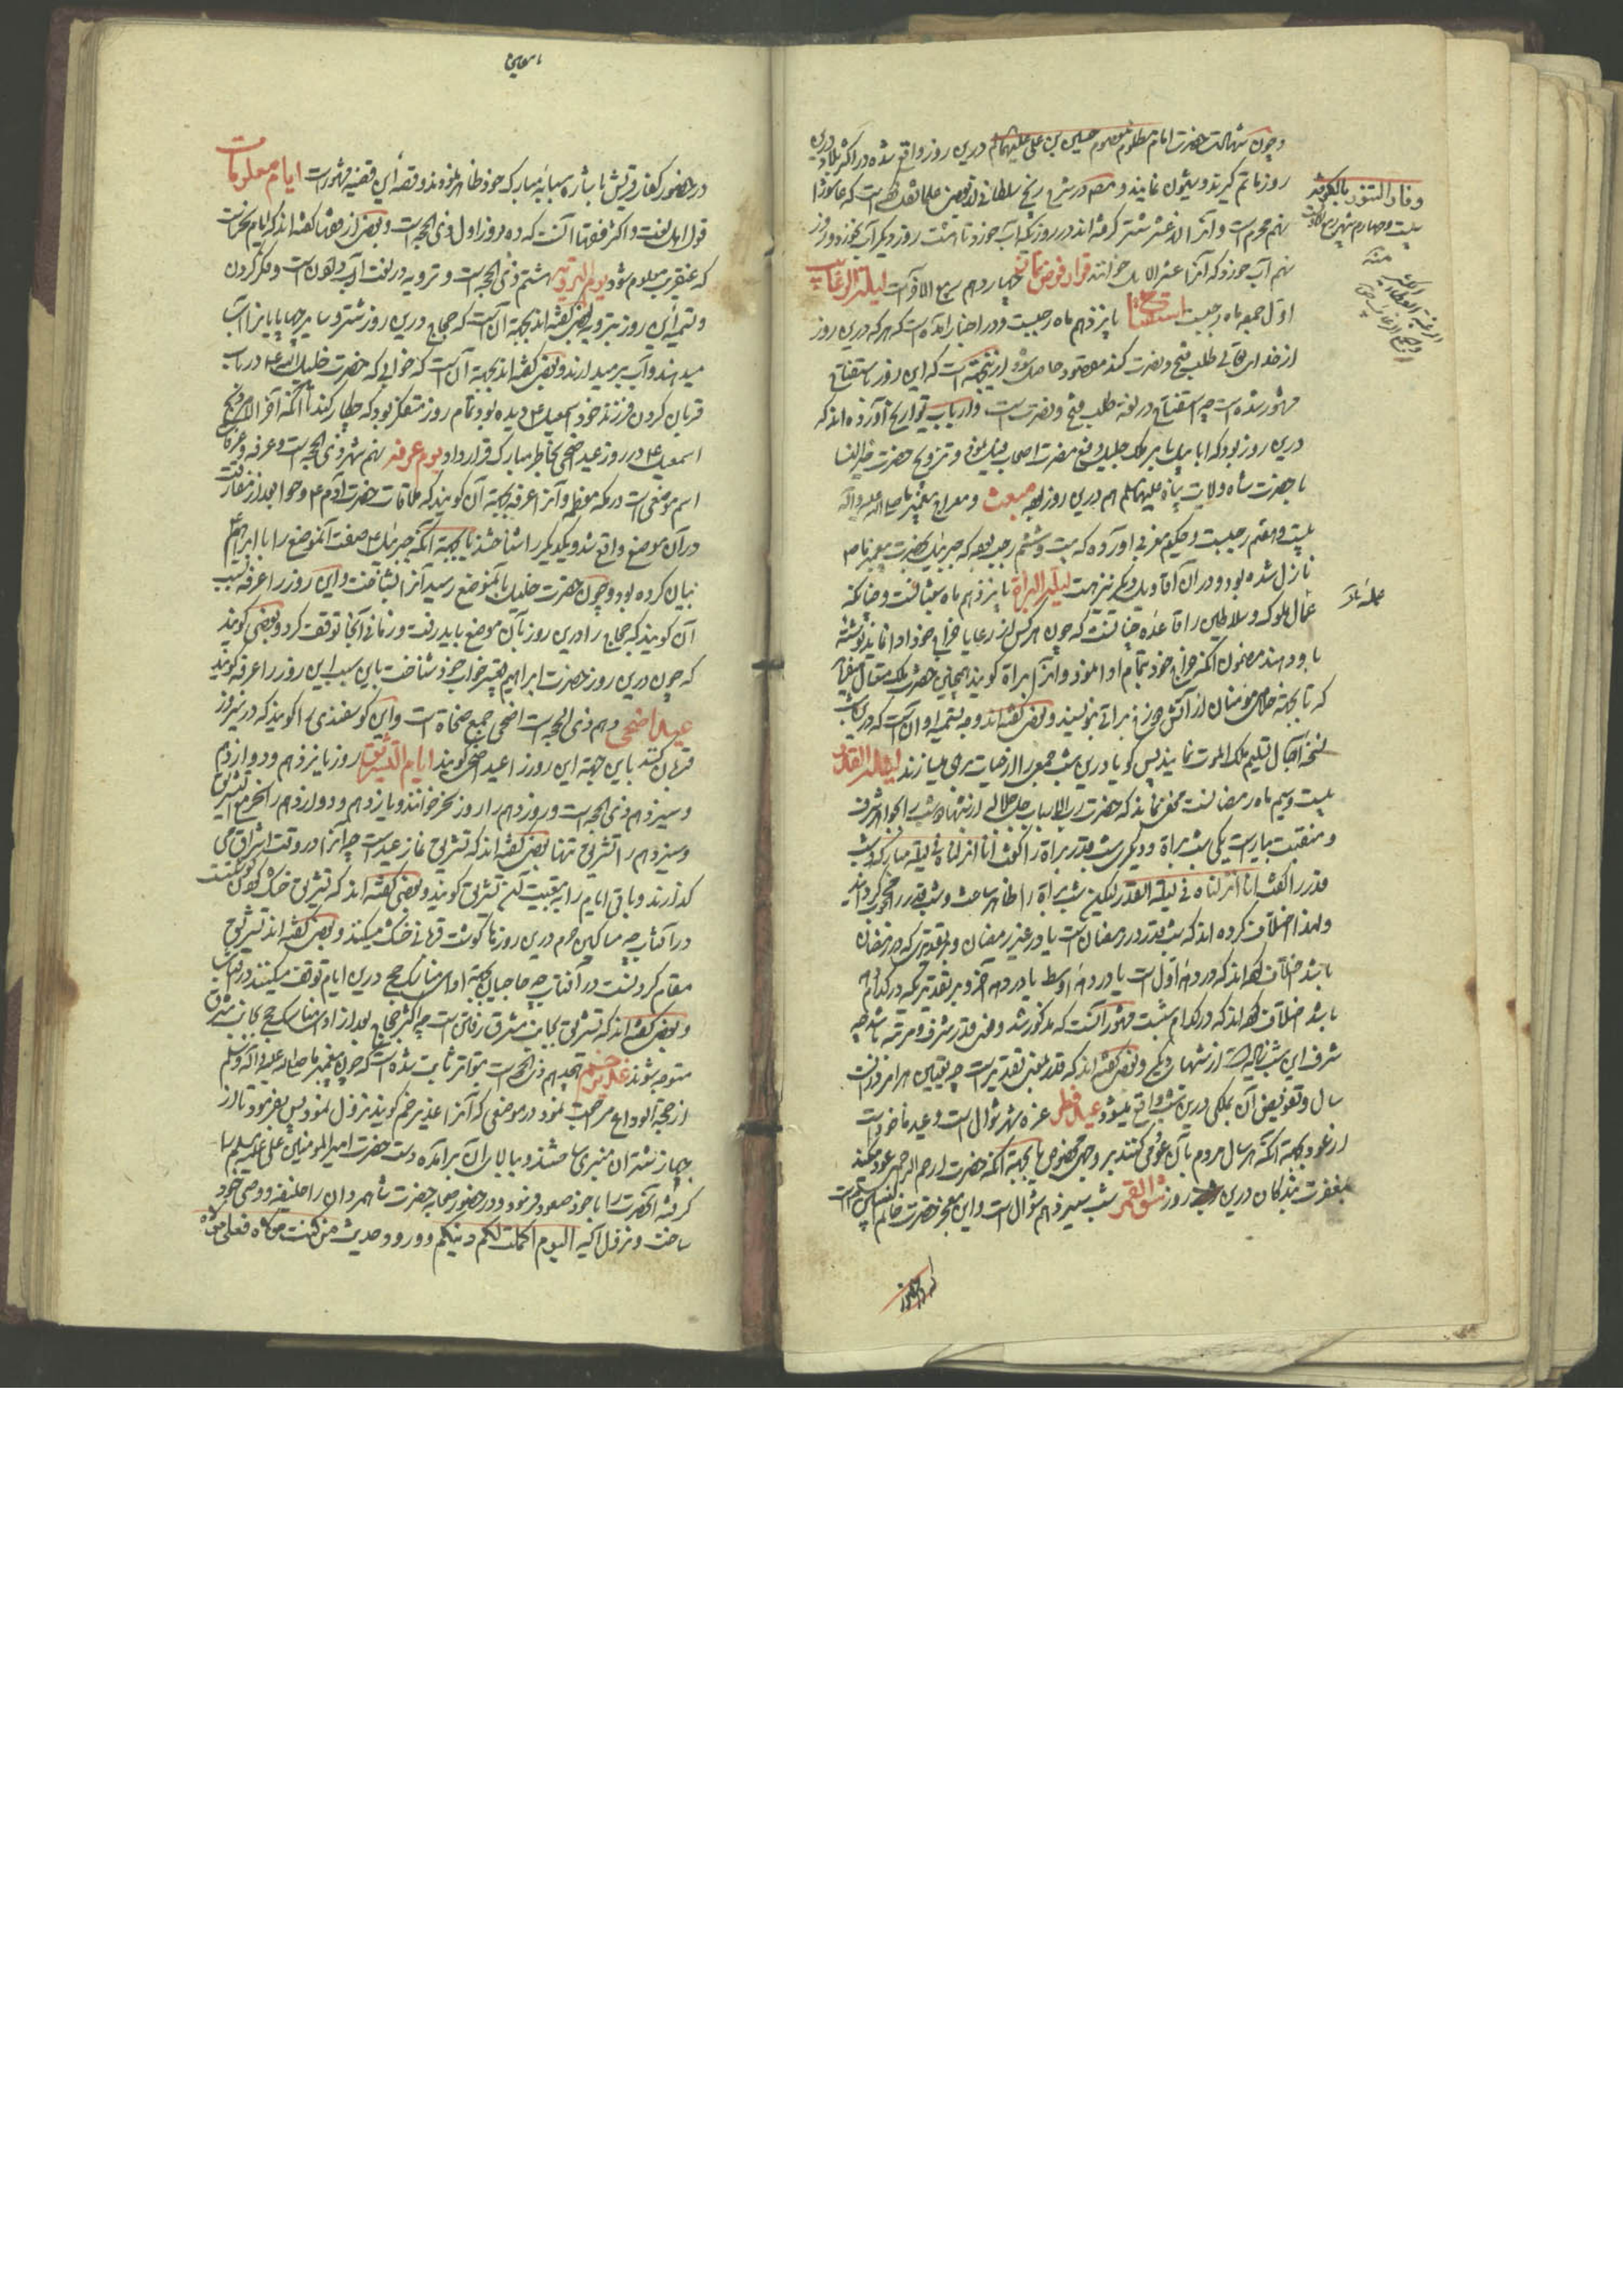 و چون شهادت حضرت امام مظلوم معصوم حسین بن علی علیهما درین روز واقع شده در اکثر بلاد درین
روز ماتم گیرند و شیون نمایند و در شرح زیج سلطانی از بعضی علما نقل است که عاشورا
نهم محرم است و آنرا از عشر شتر گرفته اند در روزیکه آب خورد تا هشت روز دیگر آب نخورد و روز
نهم آب خورد که آنرا عشر الابل خوانند قرار فرض نماز چهاردهم ربیع الاخر است لیلة الرغایب
اول جمعه ماه رجبست استفتاح پانزدهم ماه رجبست و در اخبار آمده است که هر که درین روز
از خدای تعالی طلب فتح و نصرت کند مقصود حاصل شود ازینجهت است که این روز باستفتاح
مشهور شده است چه استفتاح در لغة طلب فتح و نصرت است و ارباب تواریخ آورده اند که
درین روز بود که ابابیل بامر ملک جلیل دفع مضرت اصحاب فیل نمود و تزویج حضرت خیر النسا
با حضرت شاه ولایت پناه علیهما السلم هم درین روز مبعث و معراج پیغمبر ما صلی الله علیه و اله
بیست و هفتم رجبست و حکیم مغربی آورده که بیست و ششم رجب که جبرئیل بحضرت پیغمبر ما ص
نازل شده بود و در آن اقاویل دیگر نیز هست لیلة البراة پانزدهم ماه شعبانست و چنانکه
عمال ملوک و سلاطین را قاعده چنانست که چون هرکس از رعایا خراج خود ادا نماید نوشته
باو دهند مضمون آنکه خراج خود بتمام ادا نمود و آنرا براة گویند همچنین حضرت ملک متعال
که بجهة خلاصی مومنان از آتش دوزخ براتی نویسند و بعضی گفته اند وجه تسمیه او آن است که درین شب
نسخه آجال تسلیم ملک الموت نمایند پس گویا درین شب جمعی را از حیات بری میسازند لیلة القدر
بیست و سیم ماه رمضانست مخفی نماند که حضرت رب الارباب جل جلاله از شبها دو شب را بمزید شرف
و منقبت بیاراست یکی شب براة و دیگری شب قدر براة را گفت انا انزلناه فی لیلة مبارکة و شب
قدر را گفت انا انزلناه فی لیلة القدر لیکن شب براة را ظاهر ساخت و شب قدر را محجوب گردانید
و لهذا اختلاف کرده اند که شب قدر در رمضان است یا در غیر رمضان و بر تقدیری که در رمضان
باشد اختلاف کرده اند که در دهه اول است یا در دهه اوسط یا در دهه آخر و بر تقدیریکه در کدام دهه
باشد اختلاف کرده اند که در کدام شبست مشهور آنست که مذکور شد و معنی قدر شرف و مرتبه باشد چه
شرف این شب زیاده است از شبهای دیگر و بعضی گفته اند که قدر بمعنی تقدیر است چه تعیین هر امر در آن
سال و تفویض آن بملکی درین شب واقع میشود عید فطر غره شهر شوال است و عید ماخوذ است
از عود بجهة آنکه هر سال مردم بآن عود می کنند بر وجهی مخصوص یا بجهة آنکه حضرت ارحم الراحمین عود میکند
بمغفرت بندگان درین روز شق القمر شب سیزدهم شوال است و این معجزه حضرت خاتم النبیین است
وفات النبی
بیست و چهارم شهر
منه
الرغبة العطاء
جمع الرغایب
در حضور کفار قریش باشاره سبابه مبارکه خود ظاهر نمودند و قصه این قضیه مشهور است ایام معلومات
قول اهل لغت و اکثر فقها آنست که ده روز اول ذی الحجه است و بعضی از فقها گفته اند که ایام نحر است
که عنقریب معلوم شود یوم الترویه هشتم ذی الحجه است و ترویه در لغت آب دادن است و فکر کردن
و تسمیه این روز بترویه بعضی گفته اند بجهة آن است که حجاج درین روز شتر و سایر چهارپایانرا آب
میدهند و آب برمیدارند و بعضی گفته اند بجهة آن است که خوابی که حضرت خلیل الله ع در باب
قربان کردن فرزند خود اسمعیل ع دیده بود تمام روز متفکر بود که چکار کند تا آنکه آخر الامر ذبح
اسمعیل ع در روز عید اضحی بخاطر مبارک قرار داد یوم عرفه نهم شهر ذی الحجه است و عرفه و عرفات
اسم موضعی است در مکه معظمه و آنرا عرفه بجهة آن گویند که ملاقات حضرت آدم ع و حوا بعد از مفارقت
در آن موضع واقع شد و یکدیگر را شناختند یا بجهة آنکه جبرئیل ع صفت آنموضع را با ابراهیم ع
بیان کرده بود و چون حضرت خلیل بآنموضع رسید آنرا بشناخت و این روز را عرفه بسبب
آن گویند که حجاج را درین روز بآن موضع باید رفت و زمانی آنجا توقف کرد و بعضی گویند
که چون درین روز حضرت ابراهیم تعبیر خواب خود شناخت باین سبب این روز را عرفه گویند
عید اضحی دهم ذی الحجه است اضحی جمع اضحاة است و این گوسفندی را گویند که درین روز
قربان کنند باین جهة این روز را عید اضحی گویند ایام التشریق روز یازدهم و دوازدهم
و سیزدهم ذی الحجه است و روز دهم را روز نحر خوانند و یازدهم و دوازدهم را نحر و تشریق
و سیزدهم را تشریق تنها بعضی گفته اند که تشریق نماز عید است چه آنرا در وقت اشراق می
گذارند و باقی ایام را به تبعیت آن تشریق گویند و بعضی گفته اند که تشریق خشک کردن گوشت
در آفتاب چه مساکین حرم درین روزها گوشت قربانی خشک میکنند و بعضی گفته اند تشریق
مقام کردنست در آفتاب چه حاجیان بجهة ادای مناسک حج درین ایام توقف میکنند در آفتاب
و بعضی گفته اند که تشریق بجانب مشرق رفتن است چه اکثر حجاج بعد از ادای مناسک حج بجانب مشرق
متوجه شوند غدیر خم هجدهم ذی الحجه است بتواتر ثابت شده است که چون پیغمبر ما صلی الله علیه و اله و سلم
از حجة الوداع مراجعت نمود در موضعی که آنرا غدیر خم گویند نزول نمود پس بفرمود تا از
جهاز شتران منبری ساختند و ببالای آن برآمده دست حضرت امیر المومنین علی علیه السلم را
گرفته آنحضرت را با خود صعود فرمود و در حضور صحابه حضرت شاه مردان را خلیفه و وصی خود
ساخت و نزول آیه الیوم اکملت لکم دینکم و ورود حدیث من کنت مولاه فعلی مولاه